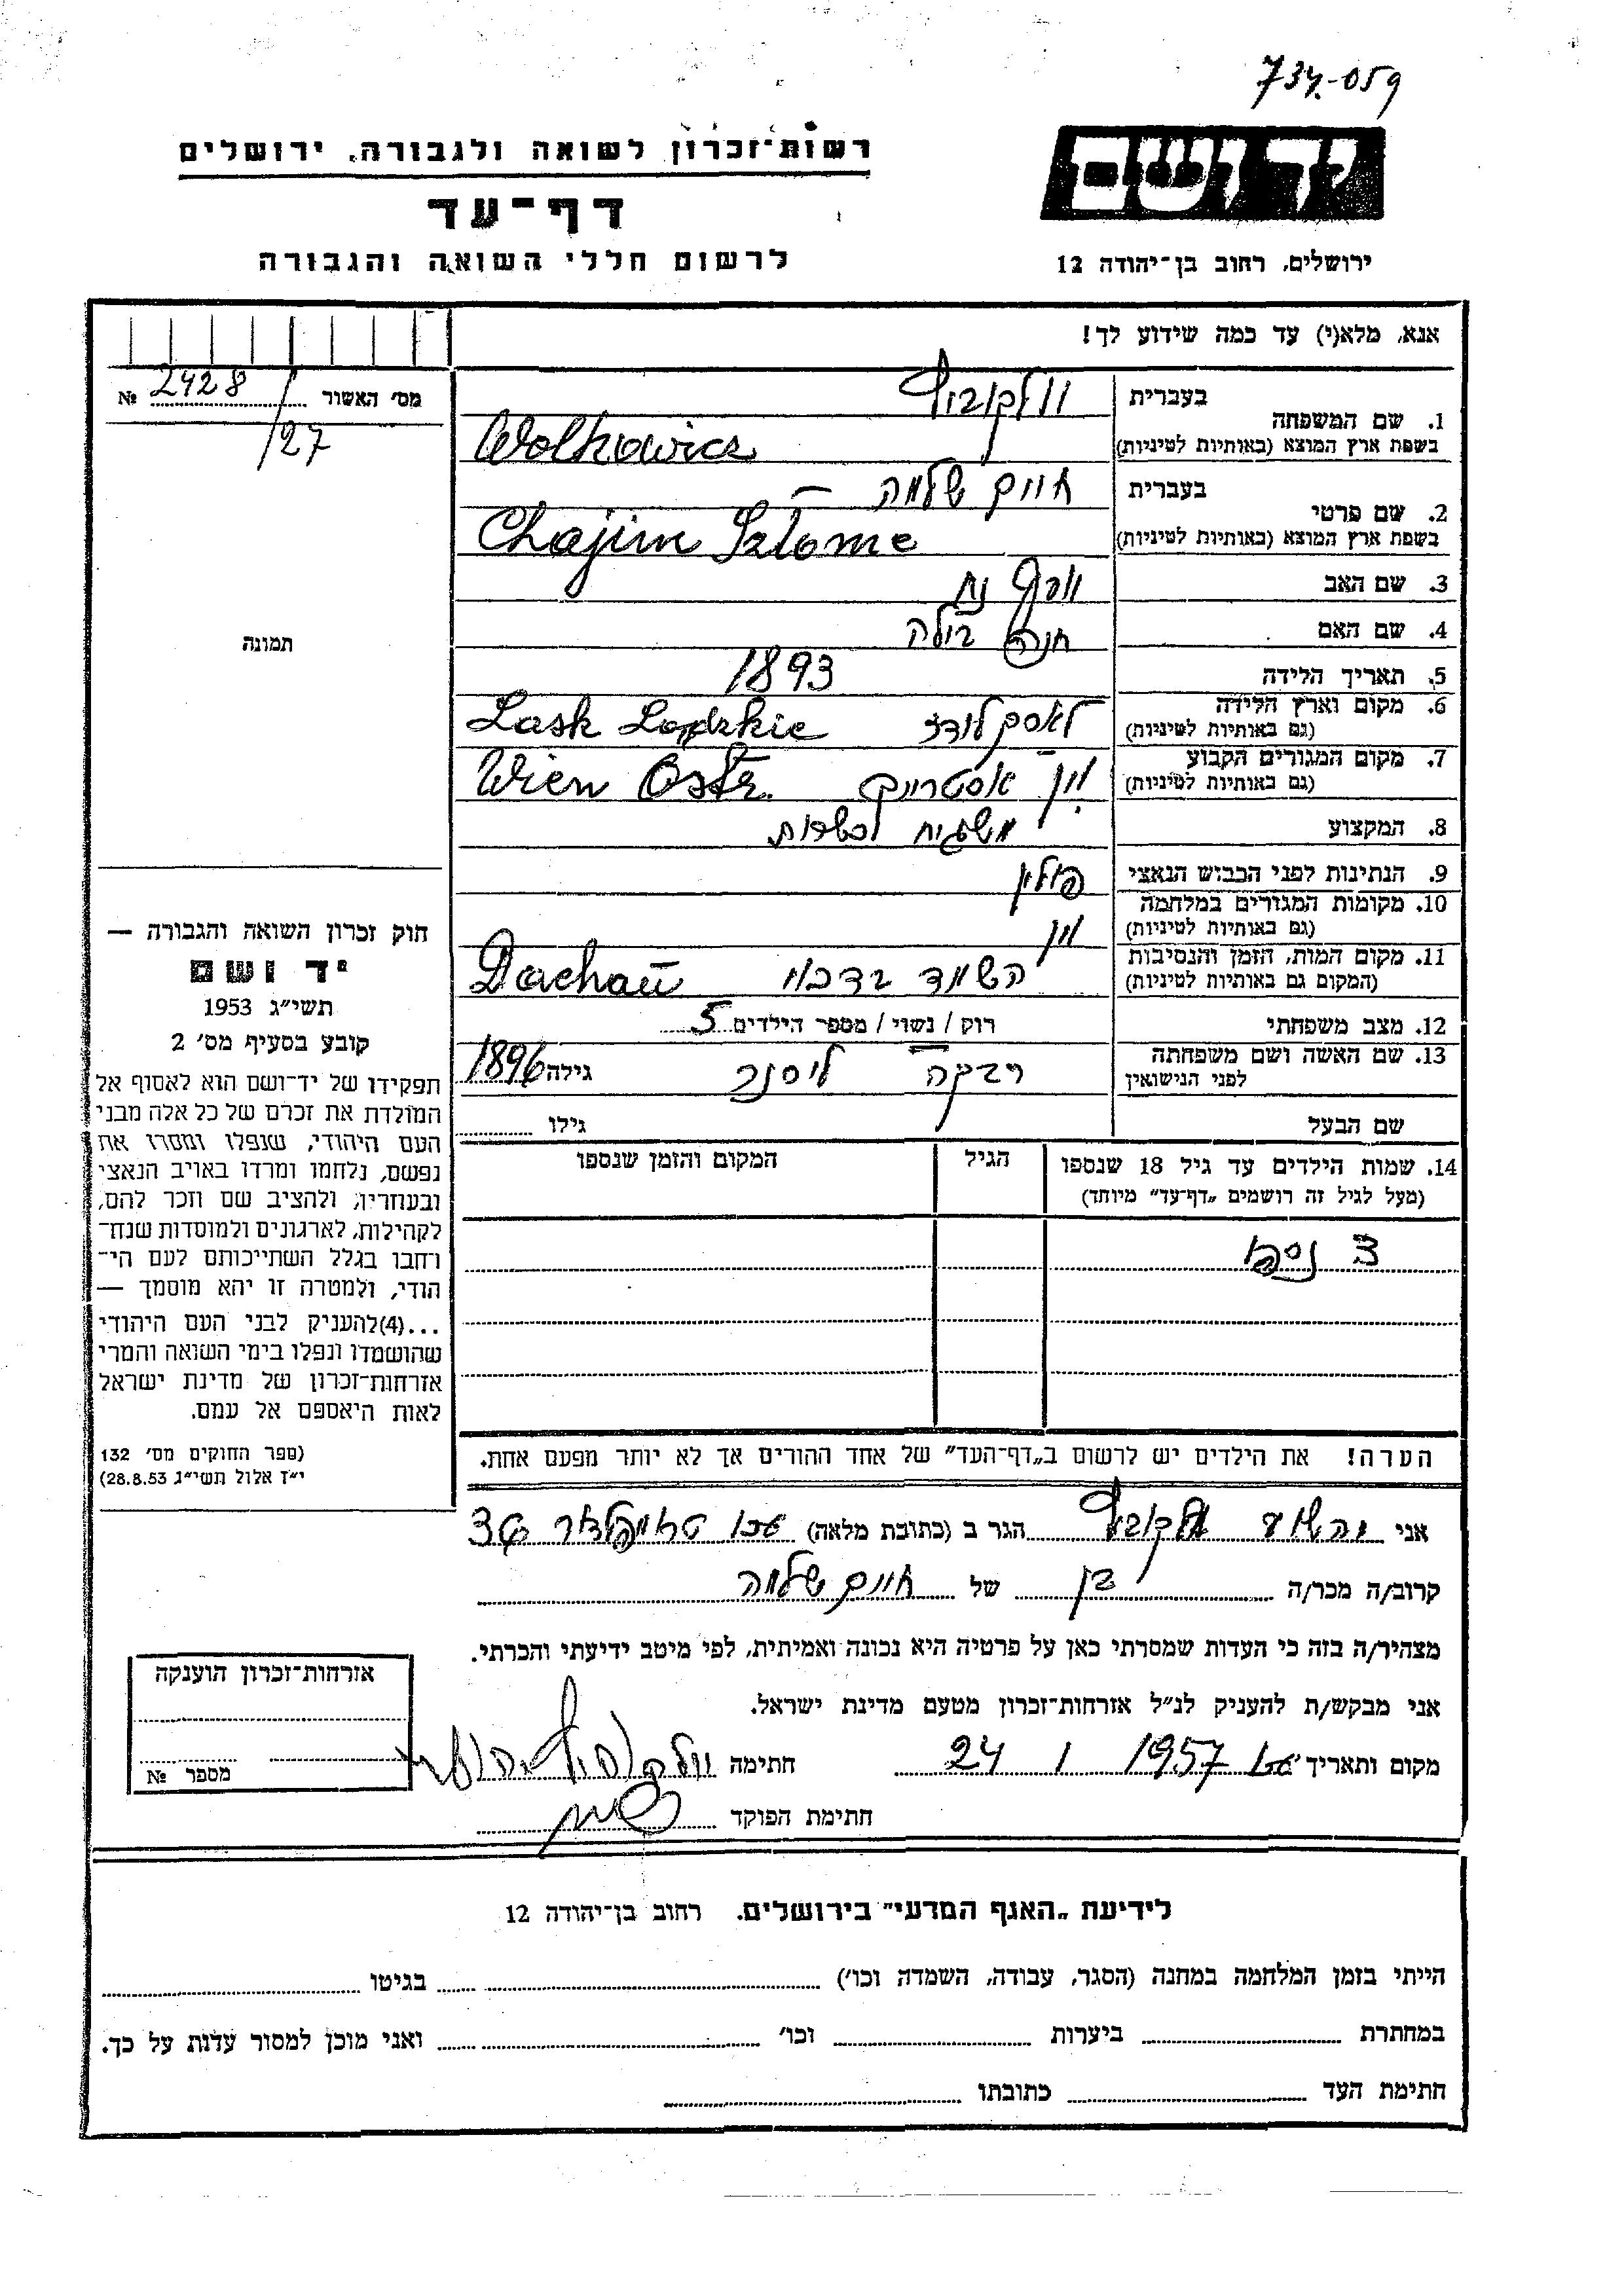 734-059
רשות־זכרון לשואה ולגבורה, ירושלים
יד ושם
דף־עד
לרשום חללי השואה והגבורה
ירושלים, רחוב בן־יהודה 12
אנא, מלא(י) עד כמה שידוע לך!
מס' האשור 2428 №
/27
תמונה
1. שם המשפחה
בעברית וולקוביץ
בשפת ארץ המוצא (באותיות לטיניות) Wolkowicz
2. שם פרטי
בעברית חיים שלמה
בשפת ארץ המוצא (באותיות לטיניות) Chajim Szlome
3. שם האב
4. שם האם חנה בילה
5. תאריך הלידה 1893
6. מקום וארץ הלידה לאסק לודז Lask Lodzkie
(גם באותיות לטיניות)
7. מקום המגורים הקבוע וין אסטרייך Wien Ostr.
(גם באותיות לטיניות)
8. המקצוע משגיח לכשרות
9. הנתינות לפני הכבוש הנאצי פולין
10. מקומות המגורים במלחמה וין
(גם באותיות לטיניות)
11. מקום המות, הזמן והנסיבות השמד בדכאו Dachau
(המקום גם באותיות לטיניות)
12. מצב משפחתי רוק / נשוי / מספר הילדים 5
13. שם האשה ושם משפחתה רבקה ליסנר גילה 1896
לפני הנישואין
שם הבעל גילו
14. שמות הילדים עד גיל 18 שנספו הגיל המקום והזמן שנספו
(מעל לגיל זה רושמים „דף־עד" מיוחד)
3 נספו
הערה! את הילדים יש לרשום ב„דף־העד" של אחד ההורים אך לא יותר מפעם אחת.
חוק זכרון השואה והגבורה —
יד ושם
תשי״ג 1953
קובע בסעיף מס' 2
תפקידו של יד־ושם הוא לאסוף אל
המולדת את זכרם של כל אלה מבני
העם היהודי, שנפלו ומסרו את
נפשם, נלחמו ומרדו באויב הנאצי
ובעוזריו, ולהציב שם וזכר להם,
לקהילות, לארגונים ולמוסדות שנח־
רחבו בגלל השתייכותם לעם הי־
הודי, ולמטרה זו יהא מוסמך —
...(4)להעניק לבני העם היהודי
שהושמדו ונפלו בימי השואה והמרי
אזרחות־זכרון של מדינת ישראל
לאות היאספם אל עמם.
(ספר החוקים מס' 132
י״ז אלול תשי״ג 28.8.53)
אני יהושע וולקוביץ הגר ב (כתובת מלאה) עכו
קרוב/ה מכר/ה בן של חיים שלמה
מצהיר/ה בזה כי העדות שמסרתי כאן על פרטיה היא נכונה ואמיתית, לפי מיטב ידיעתי והכרתי.
אני מבקש/ת להעניק לנ״ל אזרחות־זכרון מטעם מדינת ישראל.
מקום ותאריך עכו 1957 1 24 חתימה וולקוביץ יהושע
חתימת הפוקד
אזרחות־זכרון הוענקה
מספר №
לידיעת „האגף המדעי" בירושלים. רחוב בן־יהודה 12
הייתי בזמן המלחמה במחנה (הסגר, עבודה, השמדה וכו') בגיטו
במחתרת ביערות וכו' ואני מוכן למסור עדות על כך.
חתימת העד כתובתו